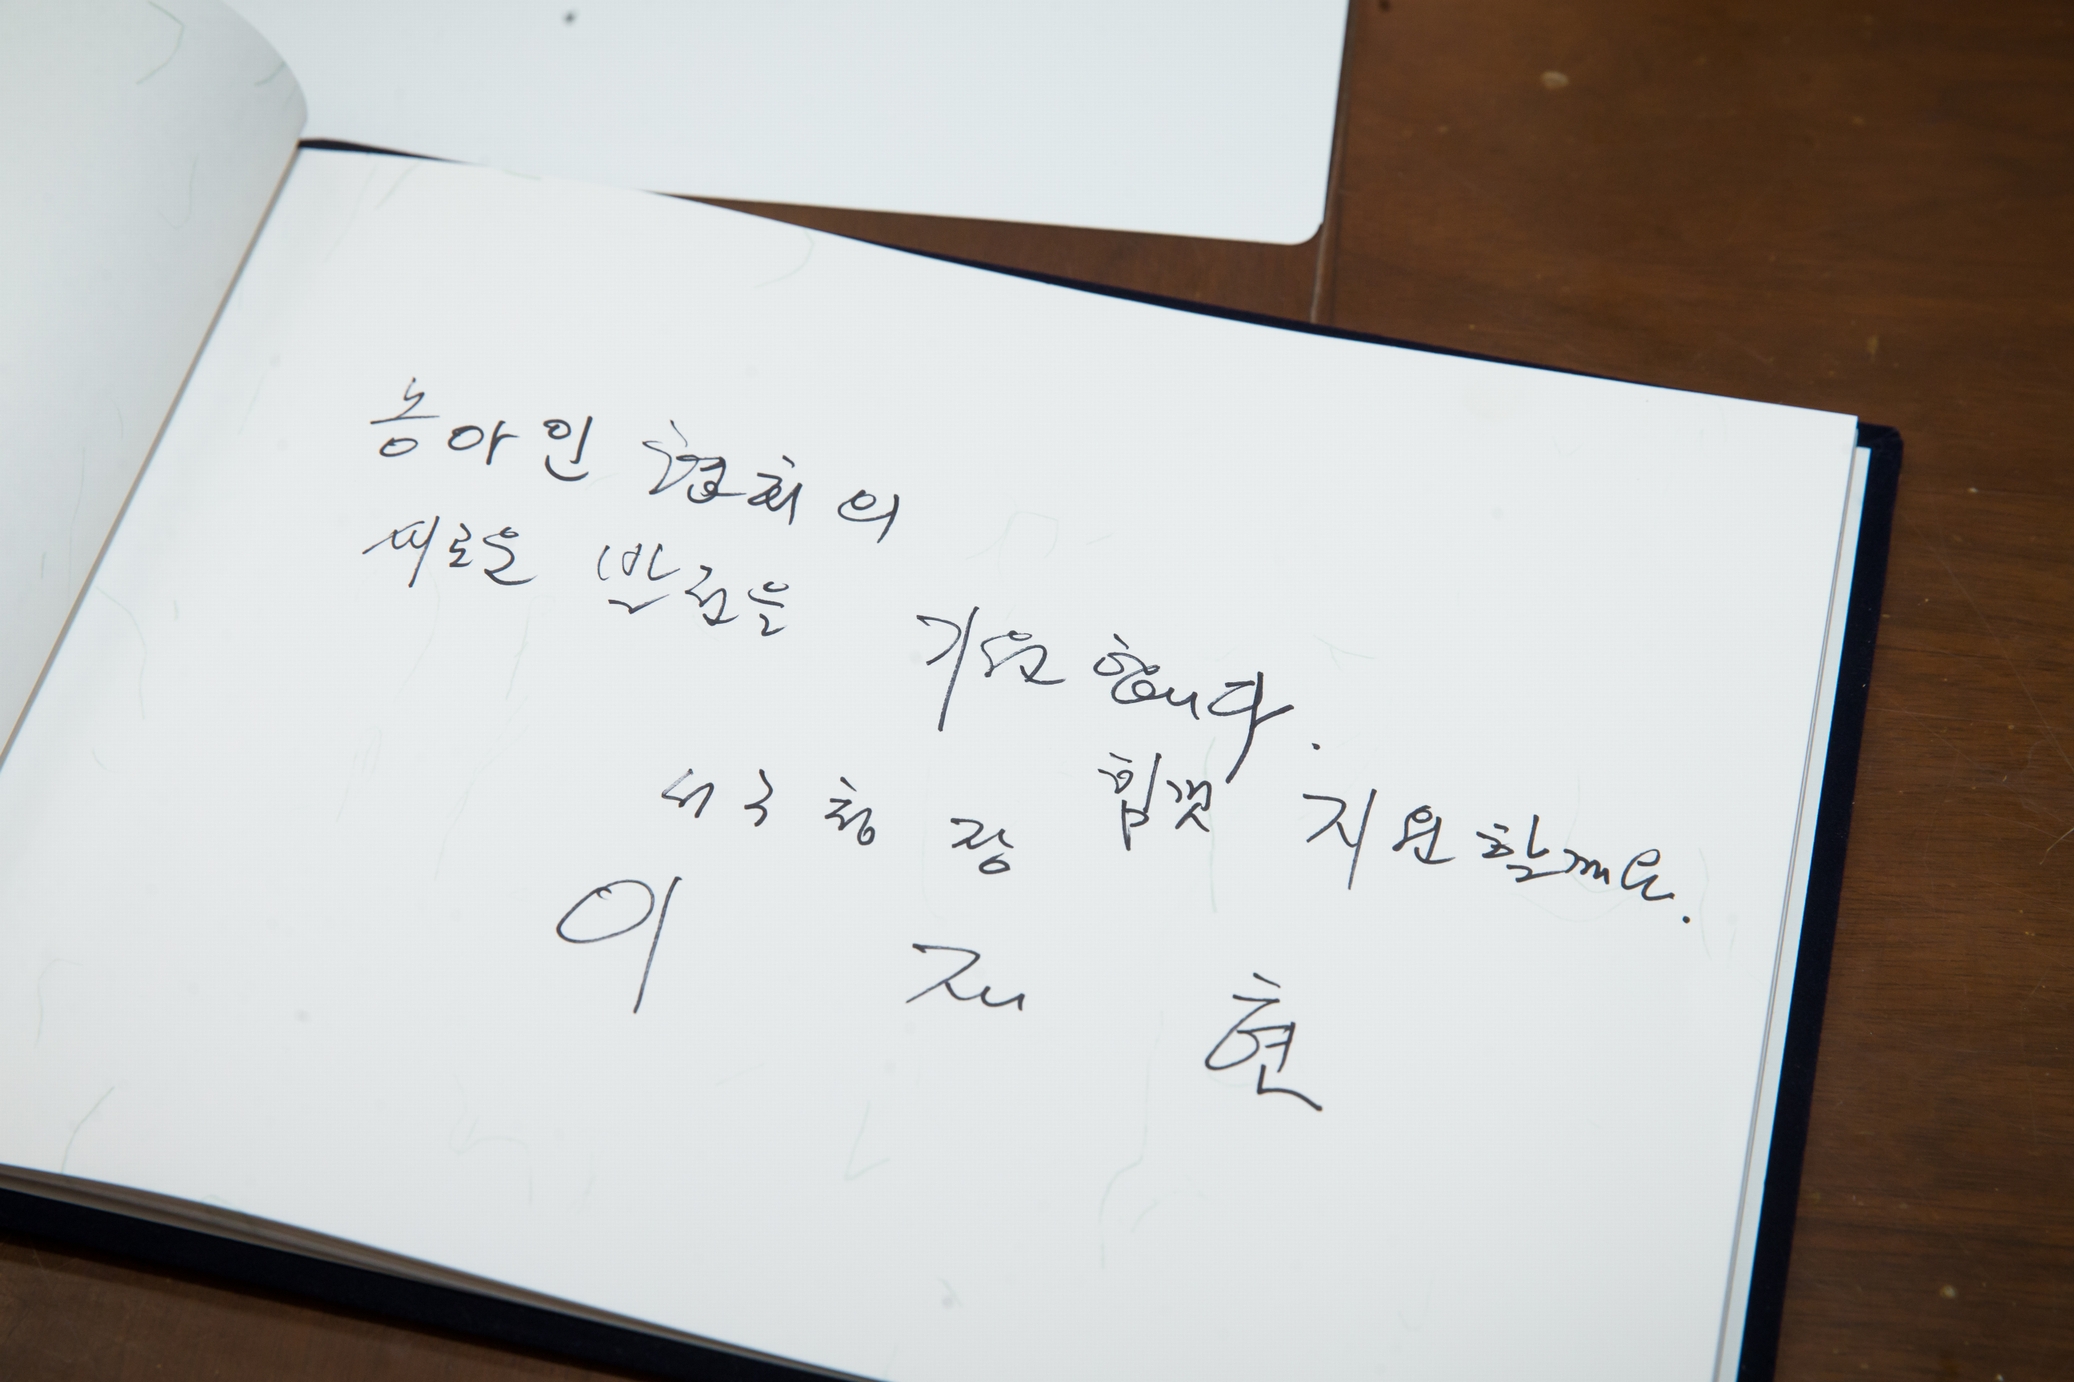 농아인 협회의
새로운 발전을 기원합니다.
힘껏 지원할께요.
서구청장
이재현